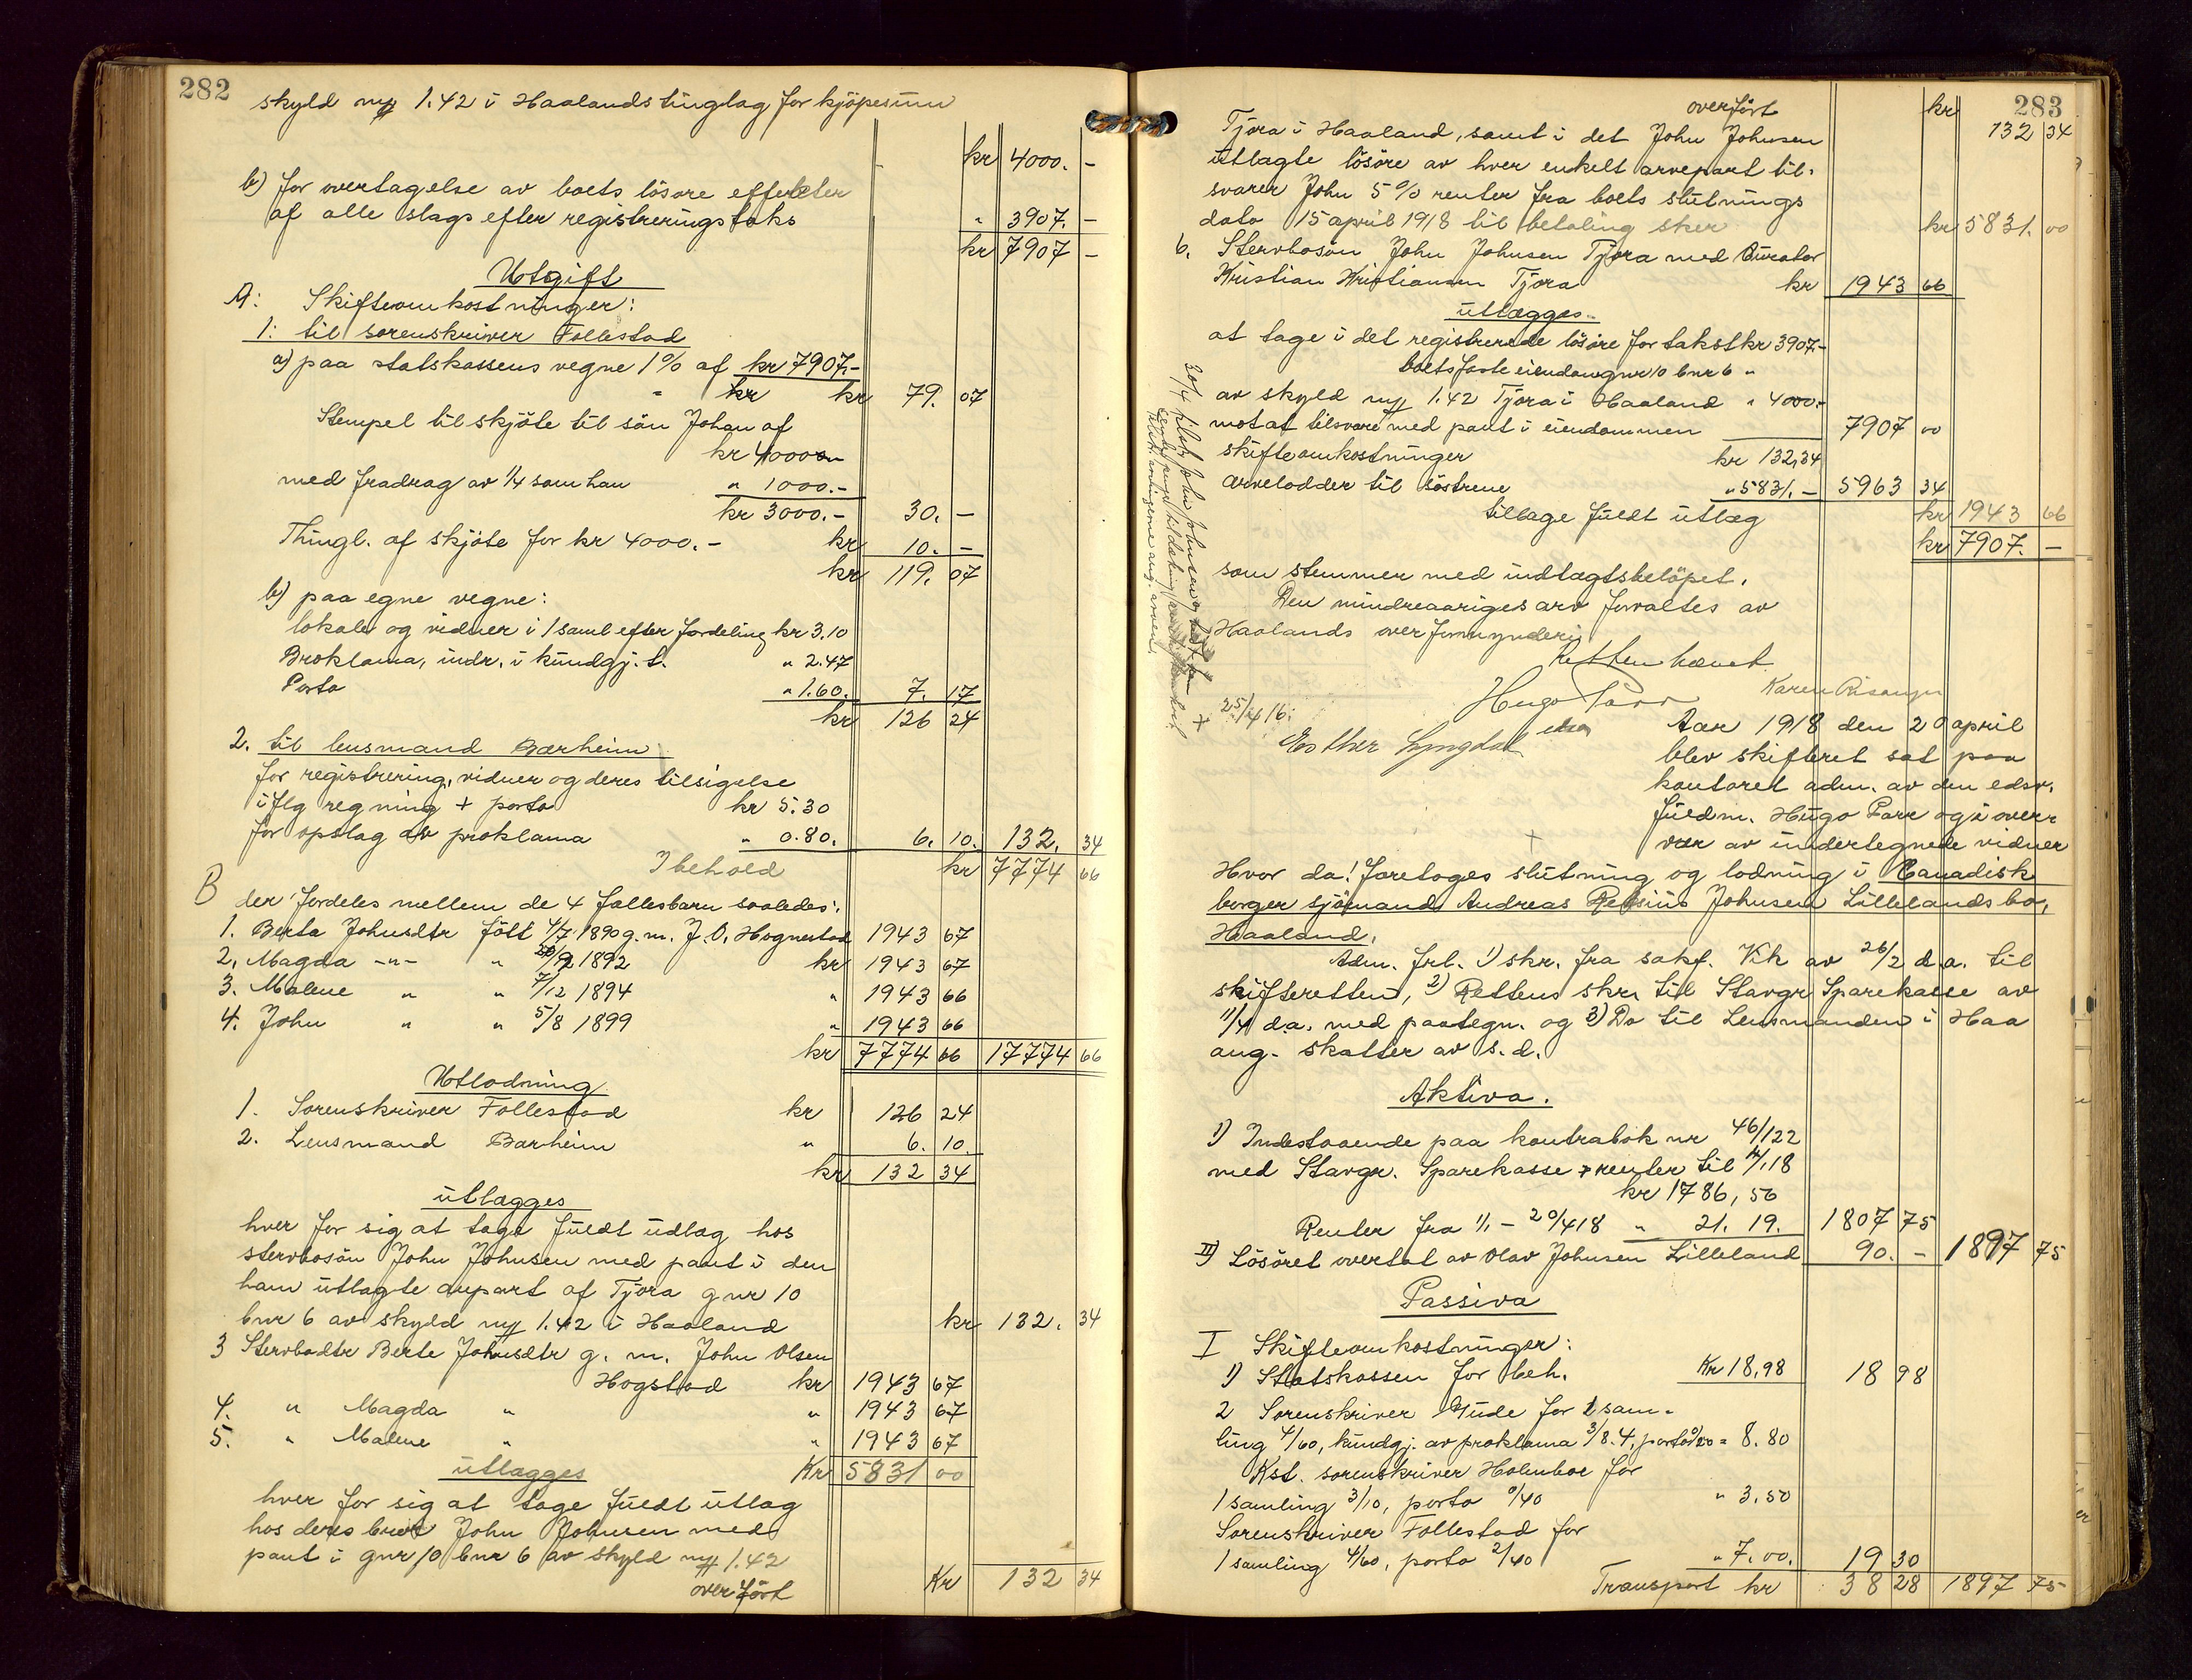 282
skyld ny 1.42 i Haalands tinglag for kjöpesum
kr 4000. -
b) for overtagelse av boets lösöre effekter
af alle slags efter registreringstaks " 3907. -
kr 7907 -
Utgift
A: Skifteomkostninger:
1: til sorenskriver Follestad
a) paa statskassens vegne 1% af kr 7907.-
" kr kr 79. 07
Stempel til skjöte til sön Johan af
kr 4000
med fradrag av 1/4 som han " 1000.-
kr 3000.- 30. -
Thingl. af skjöte for kr 4000.- kr 10. -
kr 119. 07
b) paa egne vegne:
lokale og vidner i 1 saml efter fordeling kr 3.10
Proklama, indr. i kundgj. t. " 2.47
Porto " 1.60. 7. 17
kr 126 24
2. til lensmand Bærheim
for registrering, vidner og deres tilsigelse
iflg regning + porto kr 5.30
for opslag av proklama " 0.80. 6. 10. 132. 34
I behold kr 7774 66
B der fordeles mellem de 4 fællesbarn saaledes:
1. Berta Johnsdtr född 4/7 1890 g. m. J. O. Hognestad 1943 67
2. Magda -"- " 1892 kr 1943 67
3. Malene " " 7/12 1894 " 1943 66
4. John " " 5/8 1899 " 1943 66
kr 7774 66 17774 66
Utlodning
1. Sorenskriver Follestad kr 126 24
2. Lensmand Bærheim " 6. 10.
kr 132 34
utlægges
hver for sig at tage fuldt udlag hos
stervbosön John Johnsen med pant i den
ham utlagte anpart af Tjora gnr 10
bnr 6 av skyld ny 1.42 i Haaland kr 132. 34
3 Stervbodtr Berte Johnsdtr g. m. John Olsen
Hogstad kr 1943 67
4. " Magda " " 1943 67
5. " Malene " " 1943 67
utlægges Kr 5831 00
hver for sig at tage fuldt utlag
hos deres bror John Johnsen med
pant i gnr 10 bnr 6 av skyld ny 1.42
overfört Kr 132 34
283
overfört kr 132 34
Tjora i Haaland, samt i det John Johnsen
utlagte lösöre av hver enkelt arvepart til-
svarer John 5% renter fra boets slutnings
dato 15 april 1918 til betaling sker kr 5831. 00
6. Stervbosön John Johnsen Tjora med Curator
Kristian Kristiansen Tjora kr 1943 66
utlægges
at tage i det registrerede lösöre for takst kr 3907.-
boets faste eiendom gnr 10 bnr 6 "
av skyld ny 1.42 Tjora i Haaland " 4000.-
mot at tilsvare med pant i eiendommen 7907 00
skifteomkostninger kr 132,34
arvelodder til söstrene " 5831.- 5963 34
tilbage fuldt utlæg kr 1943 66
kr 7907. -
som stemmer med indtægtsbelöpet.
Den mindreaariges arv forvaltes av
Haalands overformynderi
Retten hævet
Hugo Parr Karen
25/4 16.
Esther Lyngdal
Aar 1918 den 20 april
blev skifteret sat paa
kontoret adm. av den edsv.
fuldm. Hugo Parr og i over-
vær av undertegnede vidner
Hvor da! Foretoges slutning og lodning i Canadisk
borger sjömand Andreas Johnsen Lillelands bo,
Haaland.
Adm. frl. 1) skr. fra sakf. Vik av 26/2 d.a. til
skifteretten, 2) Rettens skr. til Stavgr Sparekasse av
11/4 d.a. med paategn. og 3) Do til Lensmanden i Haa
ang. skatter av s. d.
Aktiva.
1) Indestaaende paa kontrabok nr 46/122
med Stavgr. Sparekasse + renter til 1/1 18
kr 1786,56
Renter fra 1/1 - 20/4 18 " 21. 19. 1807 75
II) Lösöret overtat av Olav Johnsen Lilleland 90. - 1897 75
Passiva
I Skifteomkostninger:
1) Statskassen for beh. Kr 18,98 18 98
2 Sorenskriver Gude for 1 sam-
ling 4/60, kundgj. av proklama 3/8.4, porto 0/20 = 8.80
Kst. sorenskriver Holmboe for
1 samling 3/10, porto 0/40 " 3.50
Sorenskriver Follestad for
1 samling 4/60, porto 2/40 " 7.00. 19 30
Transport kr 38 28 1897 75